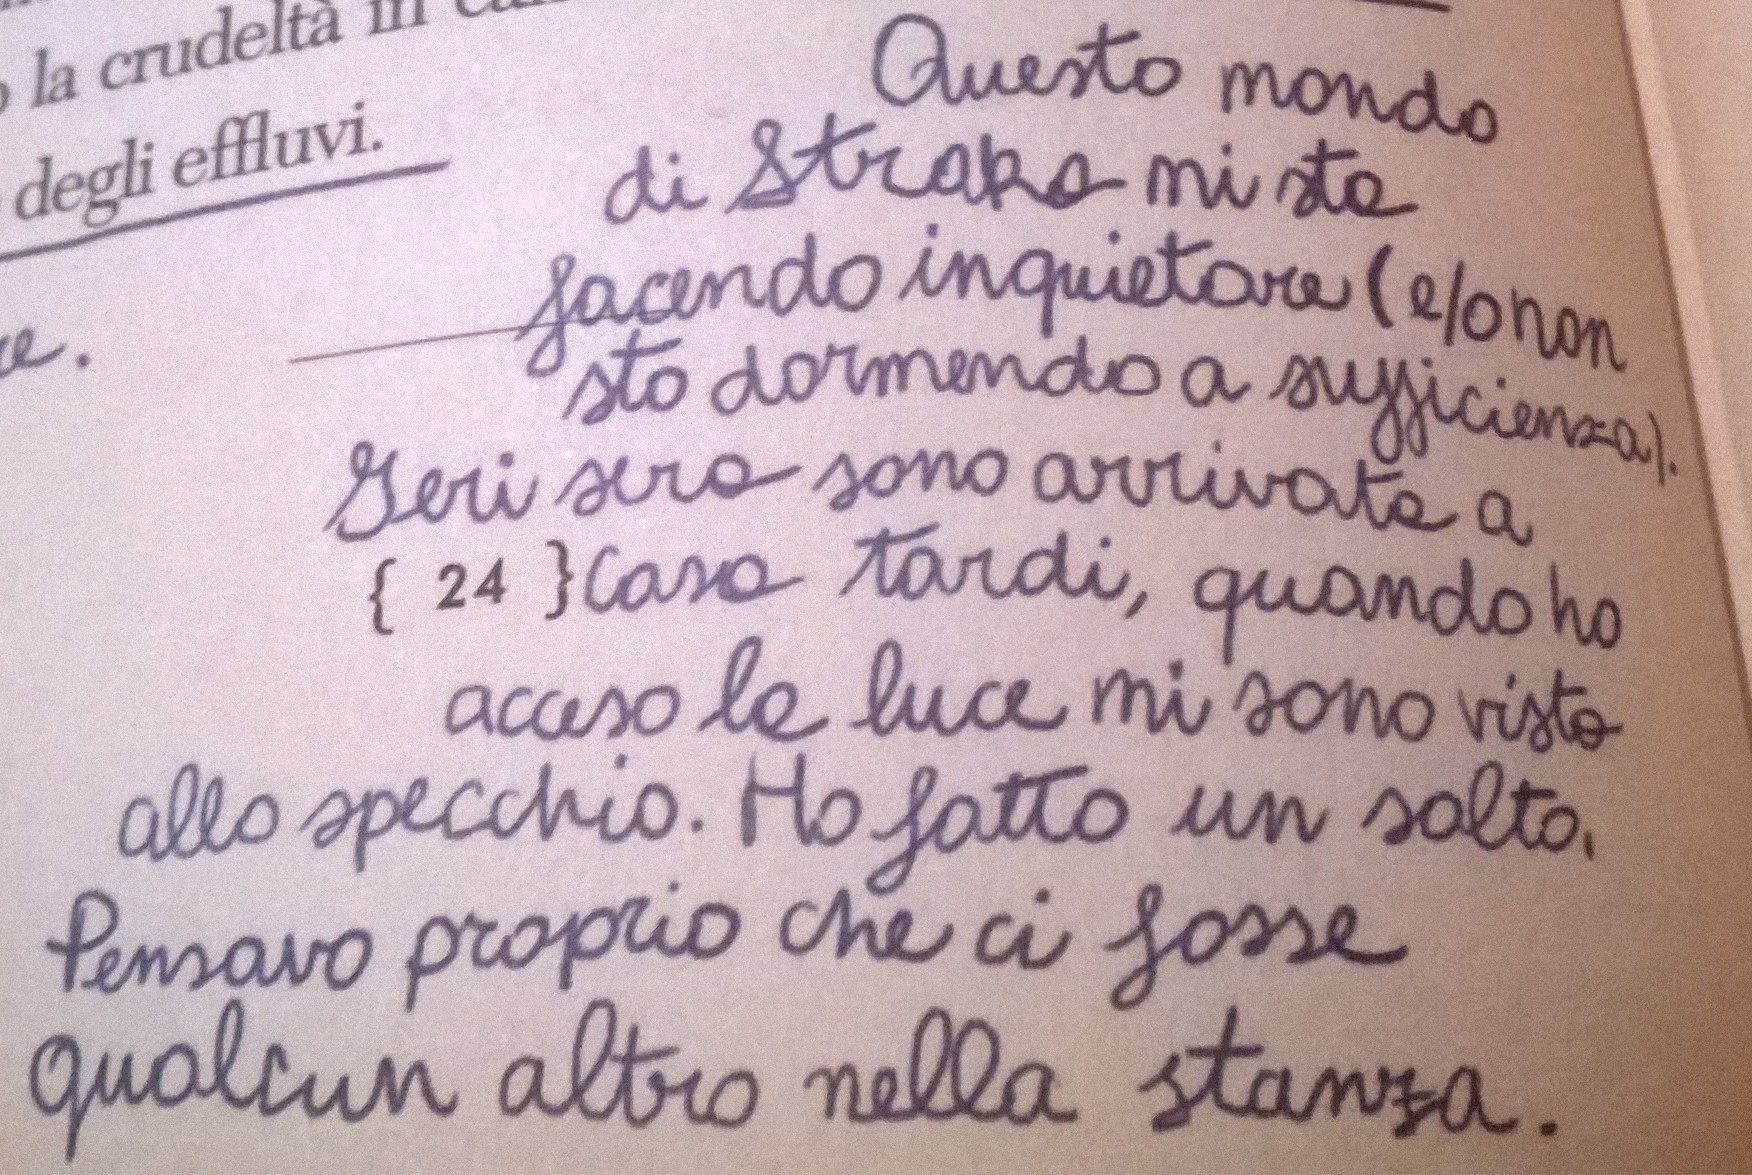 la crudeltà in
degli effluvi.
Questo mondo
di Straka mi sta
facendo inquietare (e/o non
sto dormendo a sufficienza).
Ieri sera sono arrivata a
{ 24 } Casa tardi, quando ho
acceso la luce mi sono vista
allo specchio. Ho fatto un salto.
Pensavo proprio che ci fosse
qualcun altro nella stanza.